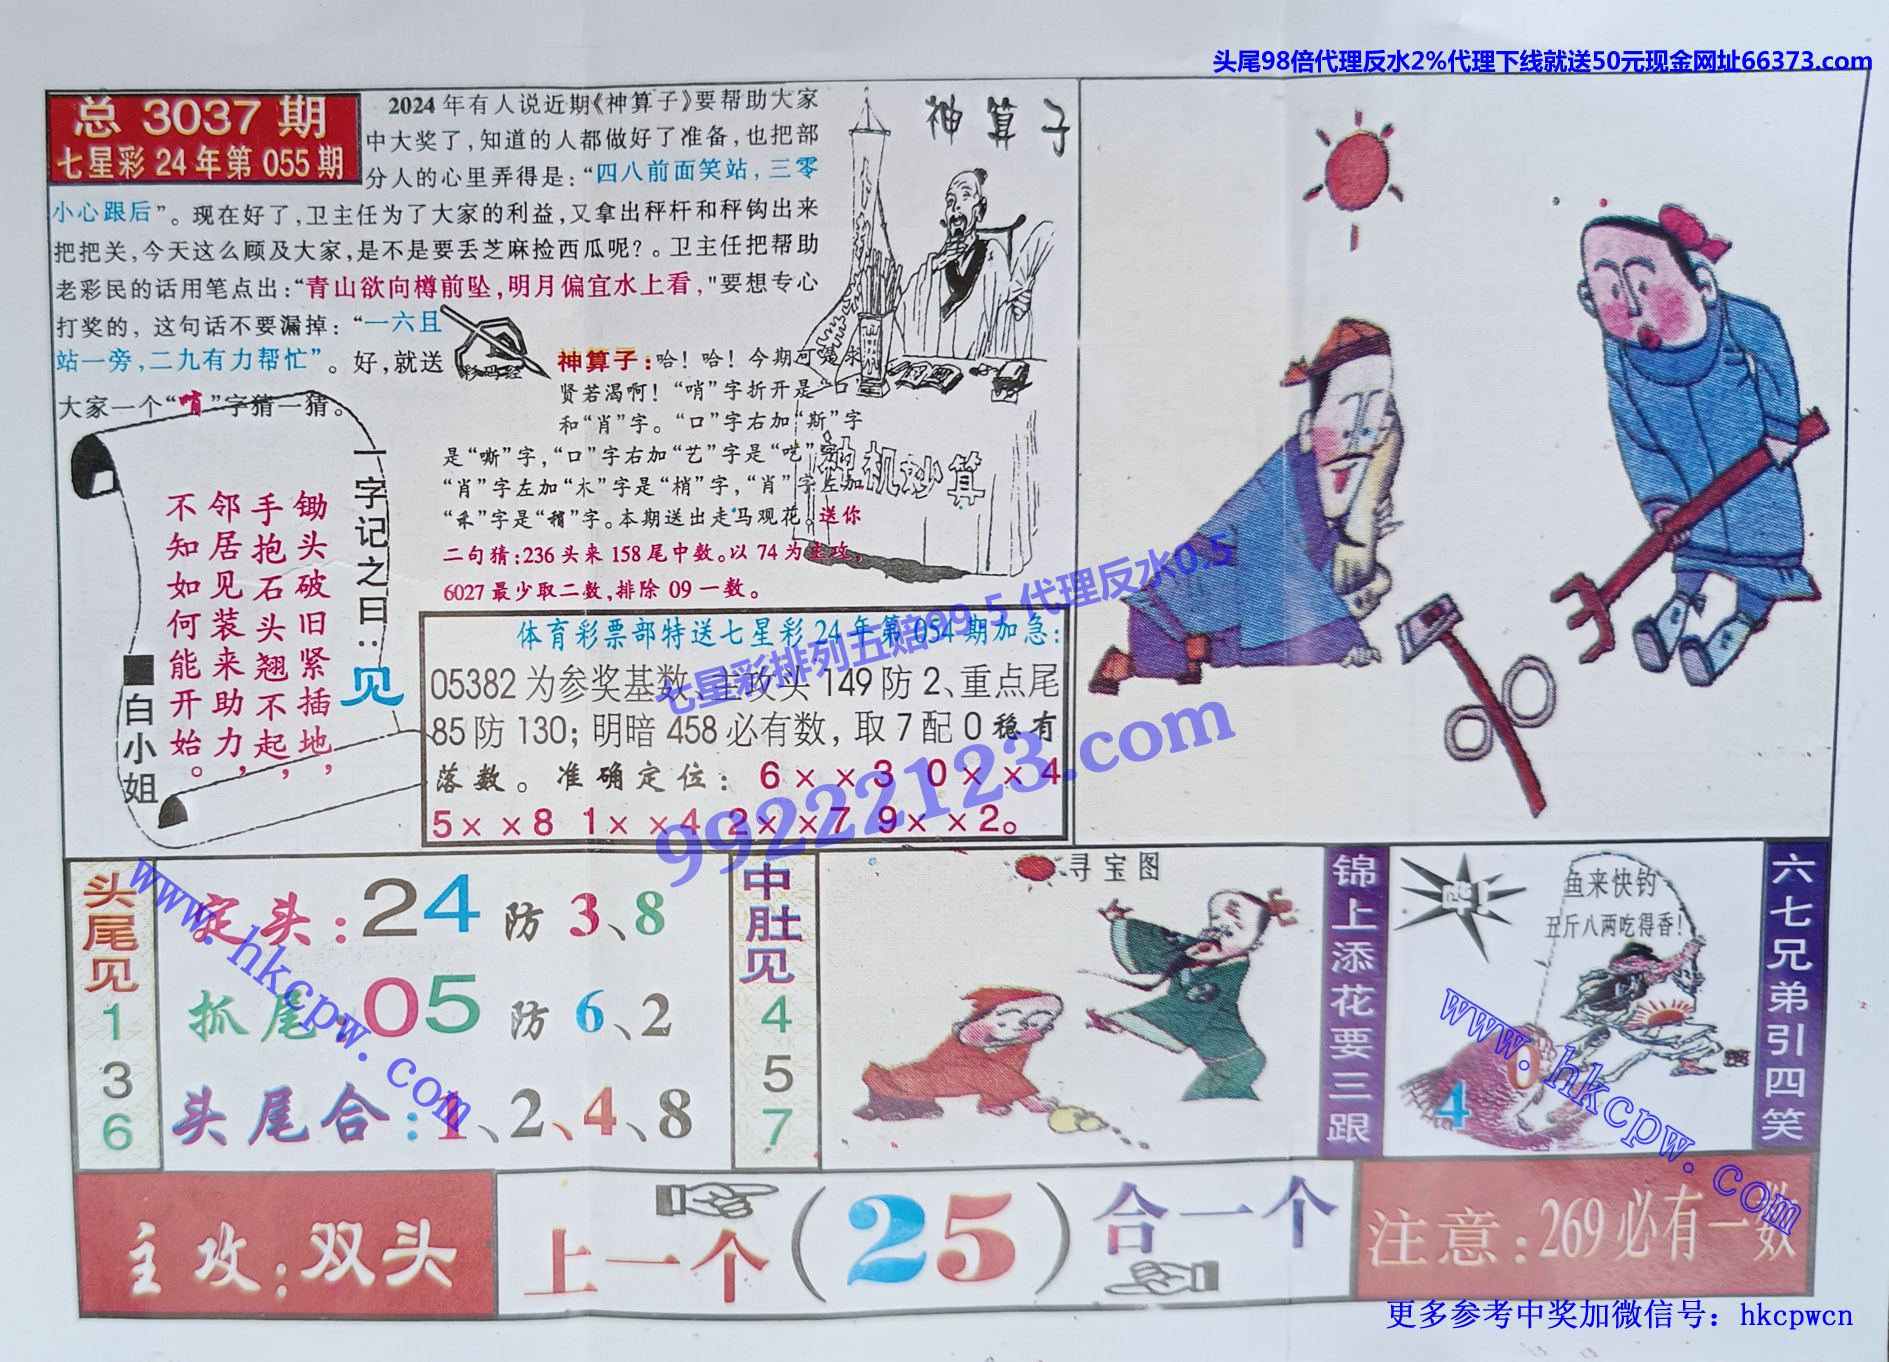 头尾98倍代理反水2%代理下线就送50元现金网址66373.com
总 3037 期
七星彩 24 年第 055 期
2024 年有人说近期《神算子》要帮助大家
中大奖了，知道的人都做好了准备，也把部
分人的心里弄得是：“四八前面笑站，三零
小心跟后”。现在好了，卫主任为了大家的利益，又拿出秤杆和秤钩出来
把把关，今天这么顾及大家，是不是要丢芝麻捡西瓜呢？。卫主任把帮助
老彩民的话用笔点出：“青山欲向樽前坠，明月偏宜水上看，"要想专心
打奖的，这句话不要漏掉：“一六且
站一旁，二九有力帮忙”。好，就送
大家一个“哨”字猜一猜。
彩码经
神算子
神机妙算
神算子：哈！哈！今期可是求
贤若渴啊！“哨”字折开是“口”
和“肖”字。“口”字右加“斯”字
是“嘶”字，“口”字右加“艺”字是“呓”字，
“肖”字左加“木”字是“梢”字，“肖”字左加
“禾”字是“稍”字。本期送出走马观花。送你
二句猜：236 头来 158 尾中数。以 74 为主攻，
6027 最少取二数，排除 09 一数。
一字记之曰：见
锄头破旧紧插地，
手抱石头翘不起，
邻居见装来助力，
不知如何能开始。
■白小姐
体育彩票部特送七星彩 24 年第 054 期加急：
05382 为参奖基数、主攻头 149 防 2、重点尾
85 防 130；明暗 458 必有数，取 7 配 0 稳有
落数。准确定位：6××3 0××4
5××8 1××4 2××7 9××2。
七星彩排列五赔99.5 代理反水0.5
99222123.com
头尾见136
定头：24 防 3、8
抓尾：05 防 6、2
头尾合：1、2、4、8
中肚见457
寻宝图
锦上添花要三跟
鱼来快钓
丑斤八两吃得香！
4 0
六七兄弟引四笑
www.hkcpw.com
www.hkcpw.com
主攻：双头
上一个（25）合一个
注意：269必有一数
更多参考中奖加微信号：hkcpwcn